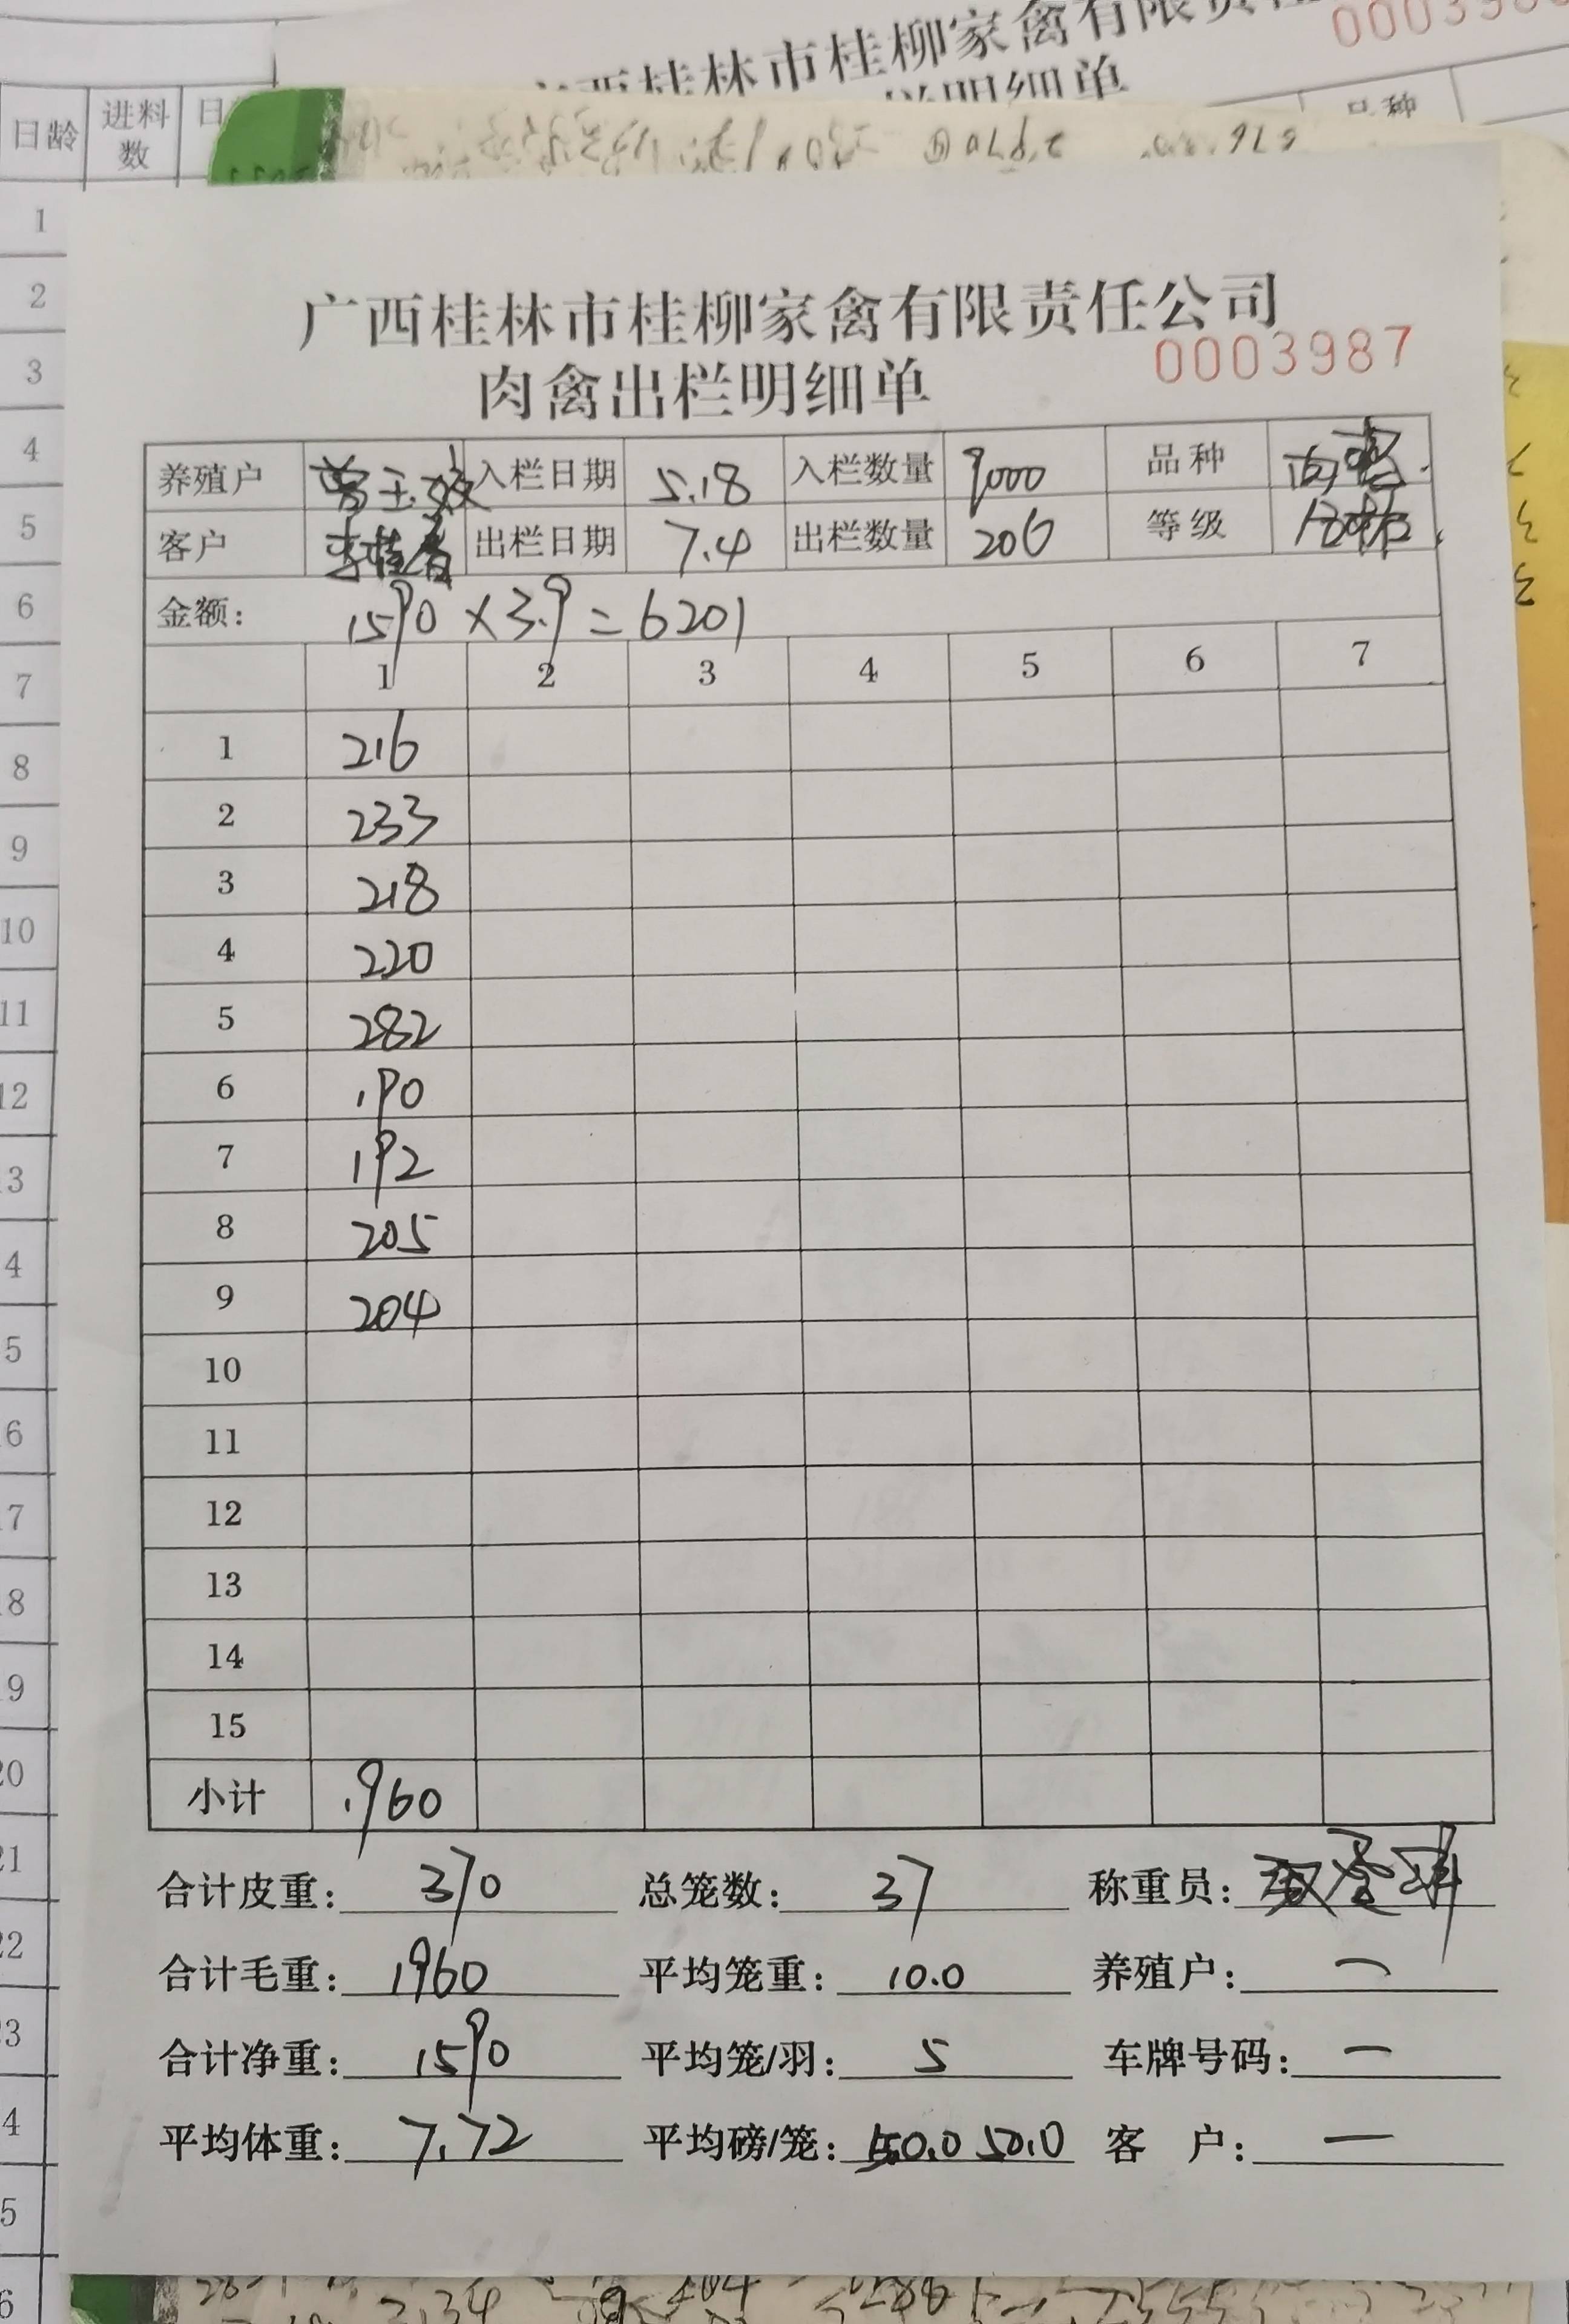 广西桂林市桂柳家禽有限责任公司
0003986
日龄 进料数
品种
1
2
3
4
5
6
7
8
9
10
11
12
广西桂林市桂柳家禽有限责任公司
0003987
肉禽出栏明细单
养殖户 入栏日期 5.18 入栏数量 9000 品种
客户 出栏日期 7.4 出栏数量 206 等级
金额: 1590×3.9=6201
1 2 3 4 5 6 7
1 216
2 233
3 218
4 220
5 282
6 190
7 192
8 205
9 204
10
11
12
13
14
15
小计 1960
合计皮重: 370 总笼数: 37 称重员:
合计毛重: 1960 平均笼重: 10.0 养殖户: 一
合计净重: 1590 平均笼/羽: 5 车牌号码: 一
平均体重: 7.72 平均磅/笼: 50.0 客 户: 一